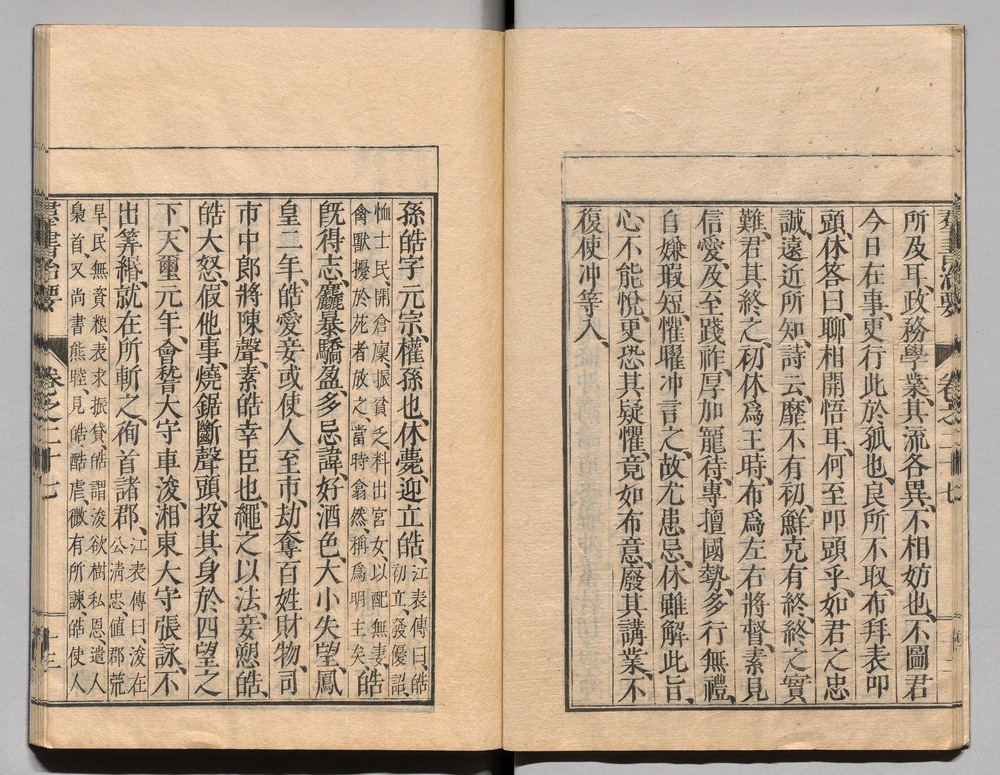 所及耳、政務學業、其流各異、不相妨也、不圖君
今日在事、更行此於孤也、良所不取、布拜表叩
頭、休答曰、聊相開悟耳、何至叩頭乎、如君之忠
誠、遠近所知、詩云、靡不有初、鮮克有終、終之實
難、君其終之、初休爲王時、布爲左右將督、素見
信愛、及至踐祚、厚加寵待、專擅國勢、多行無禮、
自嫌瑕短、懼曜沖言之、故尤患忌、休雖解此旨、
心不能悅、更恐其疑懼、竟如布意、廢其講業、不
復使沖等入、
孫皓字元宗、權孫也、休薨、迎立皓、
江表傳曰、皓初立、發優詔、
恤士民、開倉廩、振貧乏、料出宮女、以配無妻、
禽獸擾於苑者放之、當時翕然、稱爲明主矣、
皓
既得志、麤暴驕盈、多忌諱、好酒色、大小失望、鳳
皇二年、皓愛妾或使人至市、劫奪百姓財物、司
市中郎將陳聲、素皓幸臣也、繩之以法、妾愬皓、
皓大怒、假他事、燒鋸斷聲頭、投其身於四望之
下、天璽元年、會稽大守車浚、湘東大守張詠、不
出筭緡、就在所斬之、徇首諸郡、
江表傳曰、浚在公清忠、值郡荒
旱、民無資粮、表求振貸、皓謂浚欲樹私恩、遣人
梟首、又尚書熊睦、見皓酷虐、微有所諫、皓使人
羣書治要 卷之二十七 三